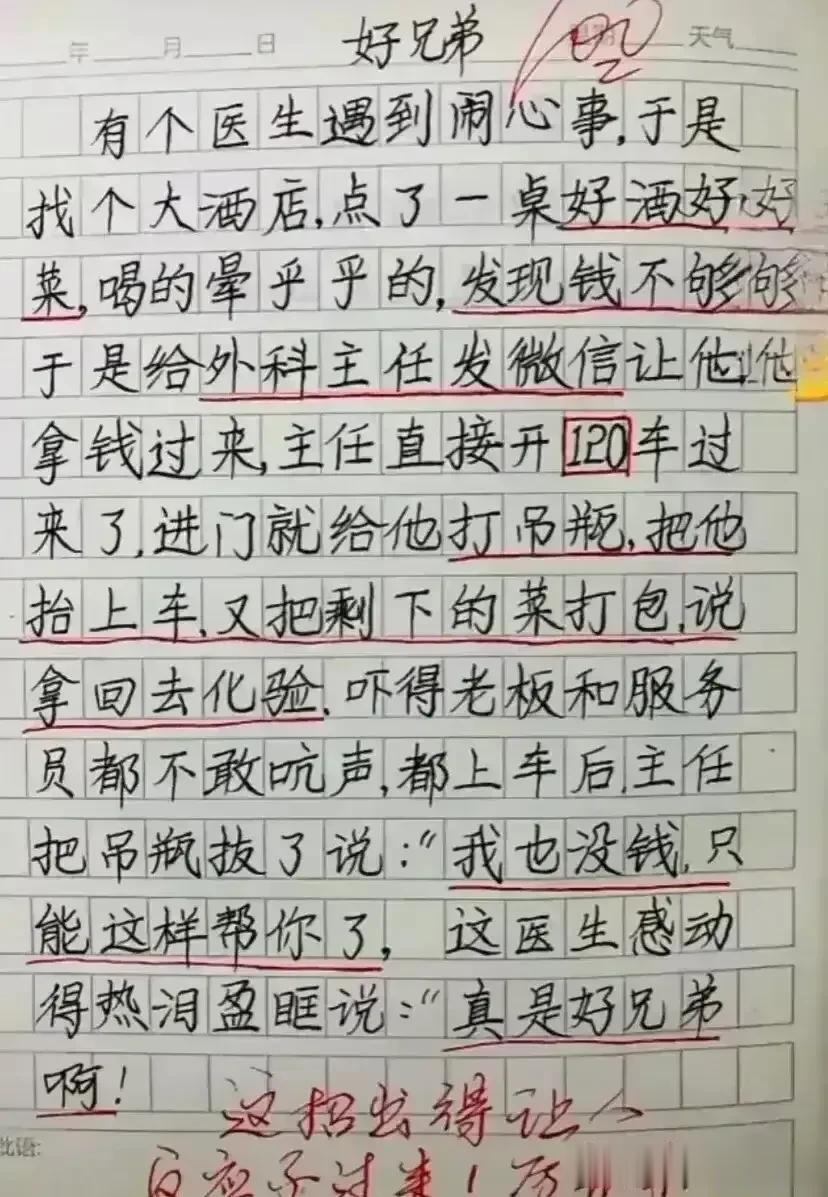 年 月 日 好兄弟 100 天气
有个医生遇到闹心事,于是
找个大酒店,点了一桌好酒好好
菜,喝的晕乎乎的,发现钱不够够
于是给外科主任发微信让他让他
拿钱过来,主任直接开120车过
来了,进门就给他打吊瓶,把他
抬上车,又把剩下的菜打包,说
拿回去化验.吓得老板和服务
员都不敢吭声,都上车后,主任
把吊瓶拔了说:“我也没钱,只
能这样帮你了, 这医生感动
得热泪盈眶说:“真是好兄弟
啊!
这招出得让人
批语:
反应不过来!厉